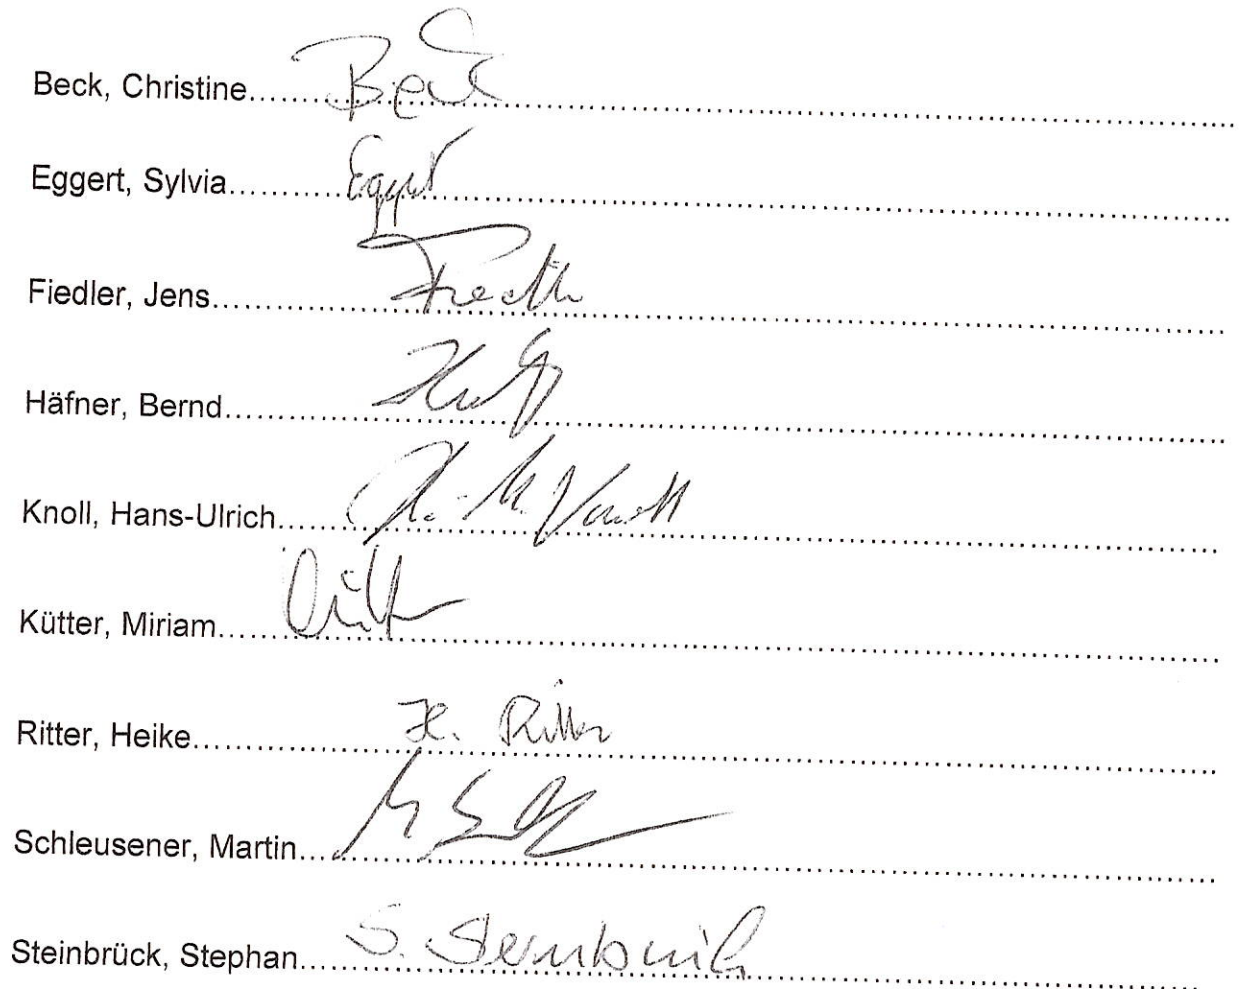 Beck, Christine.......... Beck
Eggert, Sylvia.......... Eggert
Fiedler, Jens..........
Häfner, Bernd..........
Knoll, Hans-Ulrich..........
Kütter, Miriam..........
Ritter, Heike.......... H. Ritter
Schleusener, Martin..........
Steinbrück, Stephan.......... S. Steinbrück